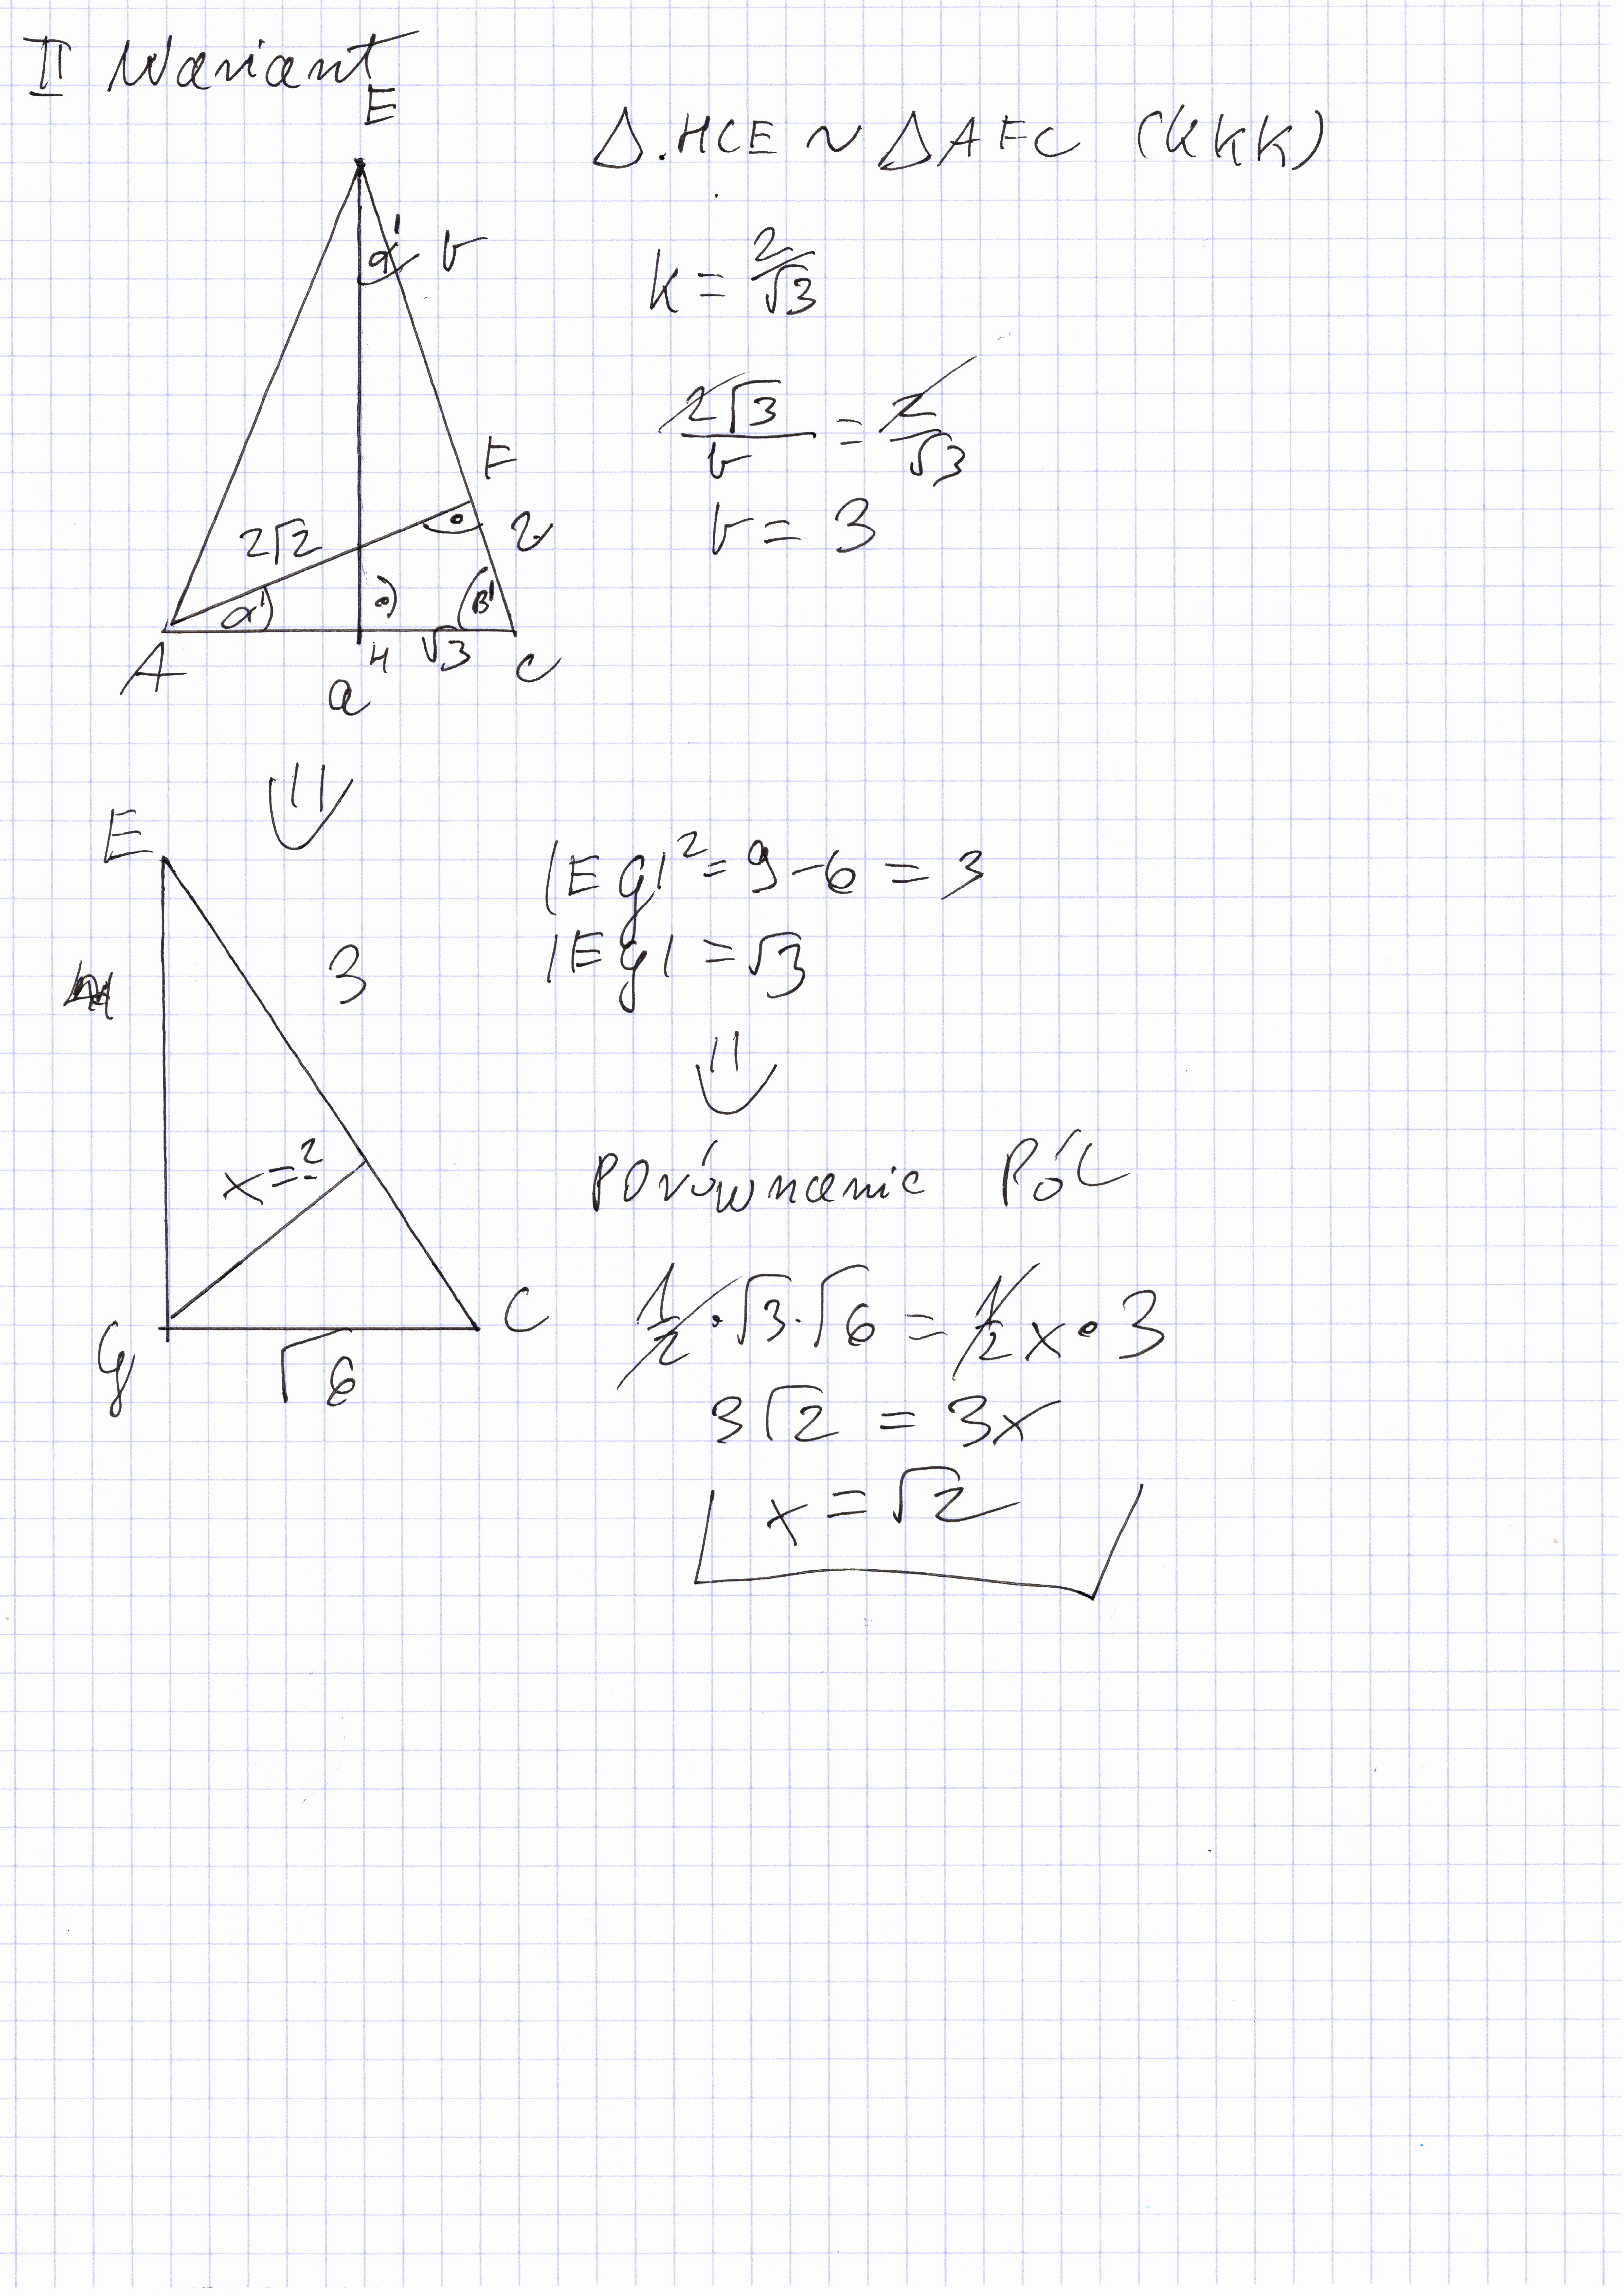 II Wariant
E
△HCE ~ △AFC (kkk)
α' b
k = 2/√3
2√3/b = 2/√3
F
b = 3
2√2
2
α' β'
H √3
A C
a
E
|EG|² = 9 - 6 = 3
3
|EG| = √3
x = ?
Porównanie Pól
C
1/2 · √3 · √6 = 1/2 x · 3
G
√6
3√2 = 3x
x = √2